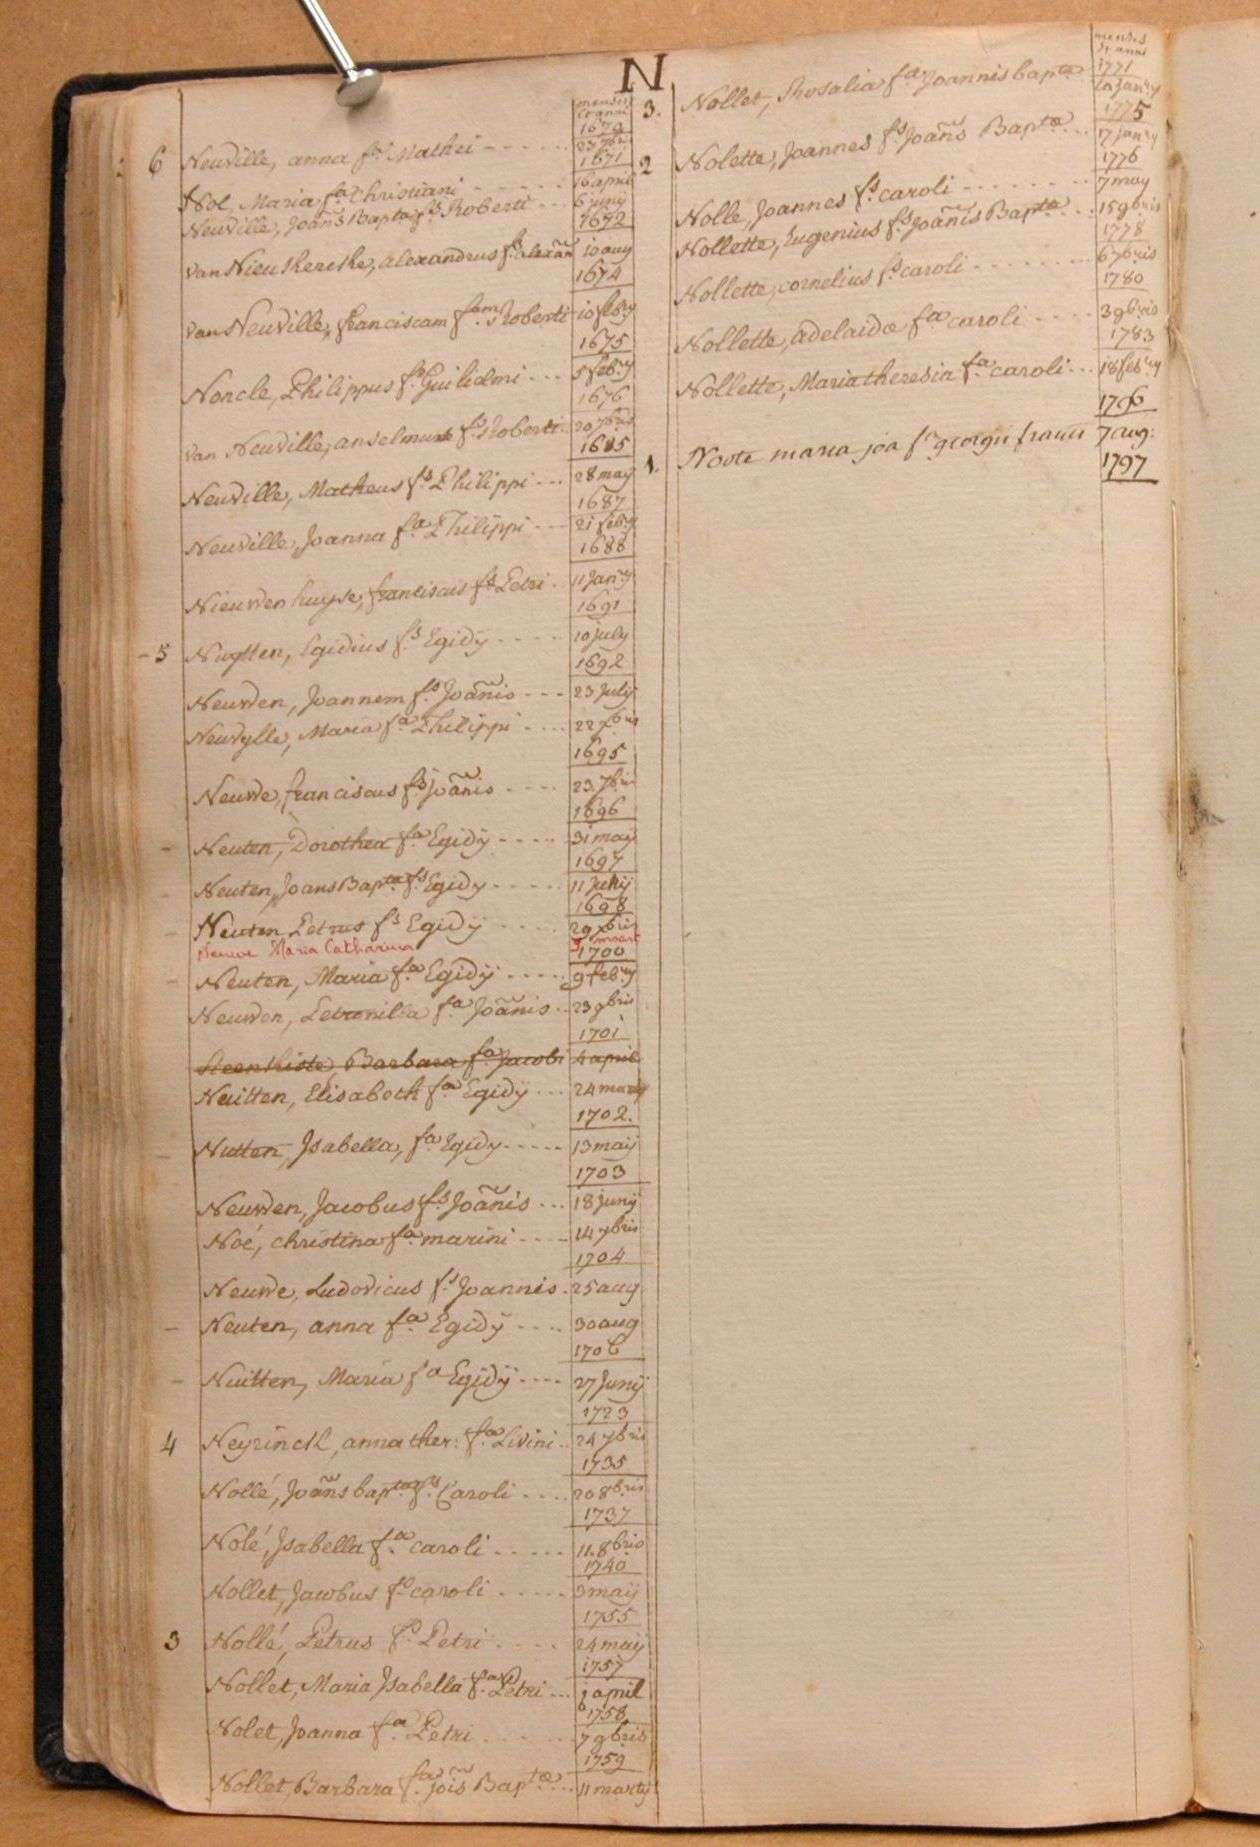 N
menses
et anni
1670
6 Neuville, anna fa Mathei - - - - - 23 7bris
1671
Nol Maria fa Christiani - - - - 16 april
Neuville, Joan̄s Bapta fs Roberti - - 6 juny
1672
van Nieukerckke, alexandrus fs alexan 10 aug
1674
van Neuville, franciscam fam Roberti 10 feb:y
1675
Noncle, Philippus fs Guilielmi - - - 5 feb:y
1676
van Neuville, anselmus fs Roberti 20 7bris
1685
Neuville, Matheus fs Philippi - - - 28 may
1687
Neuville, Joanna fa Philippi - - - 21 feb:y
1688
Nieuwenhuyse, franciscus fs Petri - 11 Jan:y
1691
5 Nuytten, Egidius fs Egidÿ - - - - 10 july
1692
Neuwen, Joannem fs Joan̄is - - - 23 July
Neuvylle, Maria fa Philippi - - - - 22 7bris
1695
Neuwe, franciscus fs joan̄is - - - - 23 7bris
1696
Neuten, Dorothea fa Egidÿ - - - - - 31 maÿ
1697
Neuten, Joans Bapta fs Egidy - - - - - 11 July
1698
Neuten Petrus fs Egidÿ - - - - - 29 xbris
Neuwe Maria Catharina 3 maart
1700
Neuten, Maria fa Egidÿ - - - - - 9 feb:ry
Neuwen, Petronilla fa Joan̄is - - 23 9bris
1701
Steenkiste, Barbara fa Jacobi 4 april
Neuitten, Elisabeth fa Egidÿ - - - 24 marty
1702.
Nutten, Jsabella, fa Egidy - - - - - 13 maÿ
1703
Neuwen, Jacobus fs Joan̄is - - - 18 junÿ
Noé, christina fa marini - - - - 14 7bris
1704
Neuwe, Ludovicus fs Joannis - 25 aug
Neuten, anna fa Egidÿ - - - - 30 aug
1706
Nuitten, Maria fa Egidÿ - - - - 27 Junÿ
1723
4 Neyrinck, anna ther: fa Livini - - 24 7bris
1735
Nollé, Joan̄s bapta fs Caroli - - - - 20 8bris
1737
Nolé, Jsabella fa caroli - - - - - 11. 8bris
1740
Nollet, Jacobus fs caroli - - - - - 3 maÿ
1755
3 Nollé, Petrus fs Petri - - - - 24 maÿ
1757
Nollet, Maria Jsabella fa Petri - - - j april
1758
Nolet, Joanna fa Petri - - - - - - 7 9bris
1759
Nollet, Barbara fa jois Baptæ - - - 11 marty
menses
et anni
1771
3. Nollet, Rosalia fa Joannis baptæ 20 jan:ry
1775
2 Nolette, Joannes fs Joan̄s Baptæ - - - 17 jan:ry
1776
Nolle, Joannes fs caroli - - - - - - - - 7 may
Nollette, Eugenius fs Joan̄is Baptæ - - - 15 9bris
1778
Nollette, cornelius fs caroli - - - - - - - - 6 7bris
1780
Nollette, Adelaidæ fa caroli - - - - - 3 9bris
1783
Nollette, Maria theresia fa caroli - - - 18 feb:ry
1796
1. Noote maria joa fa georgii francis 7 aug:
1797